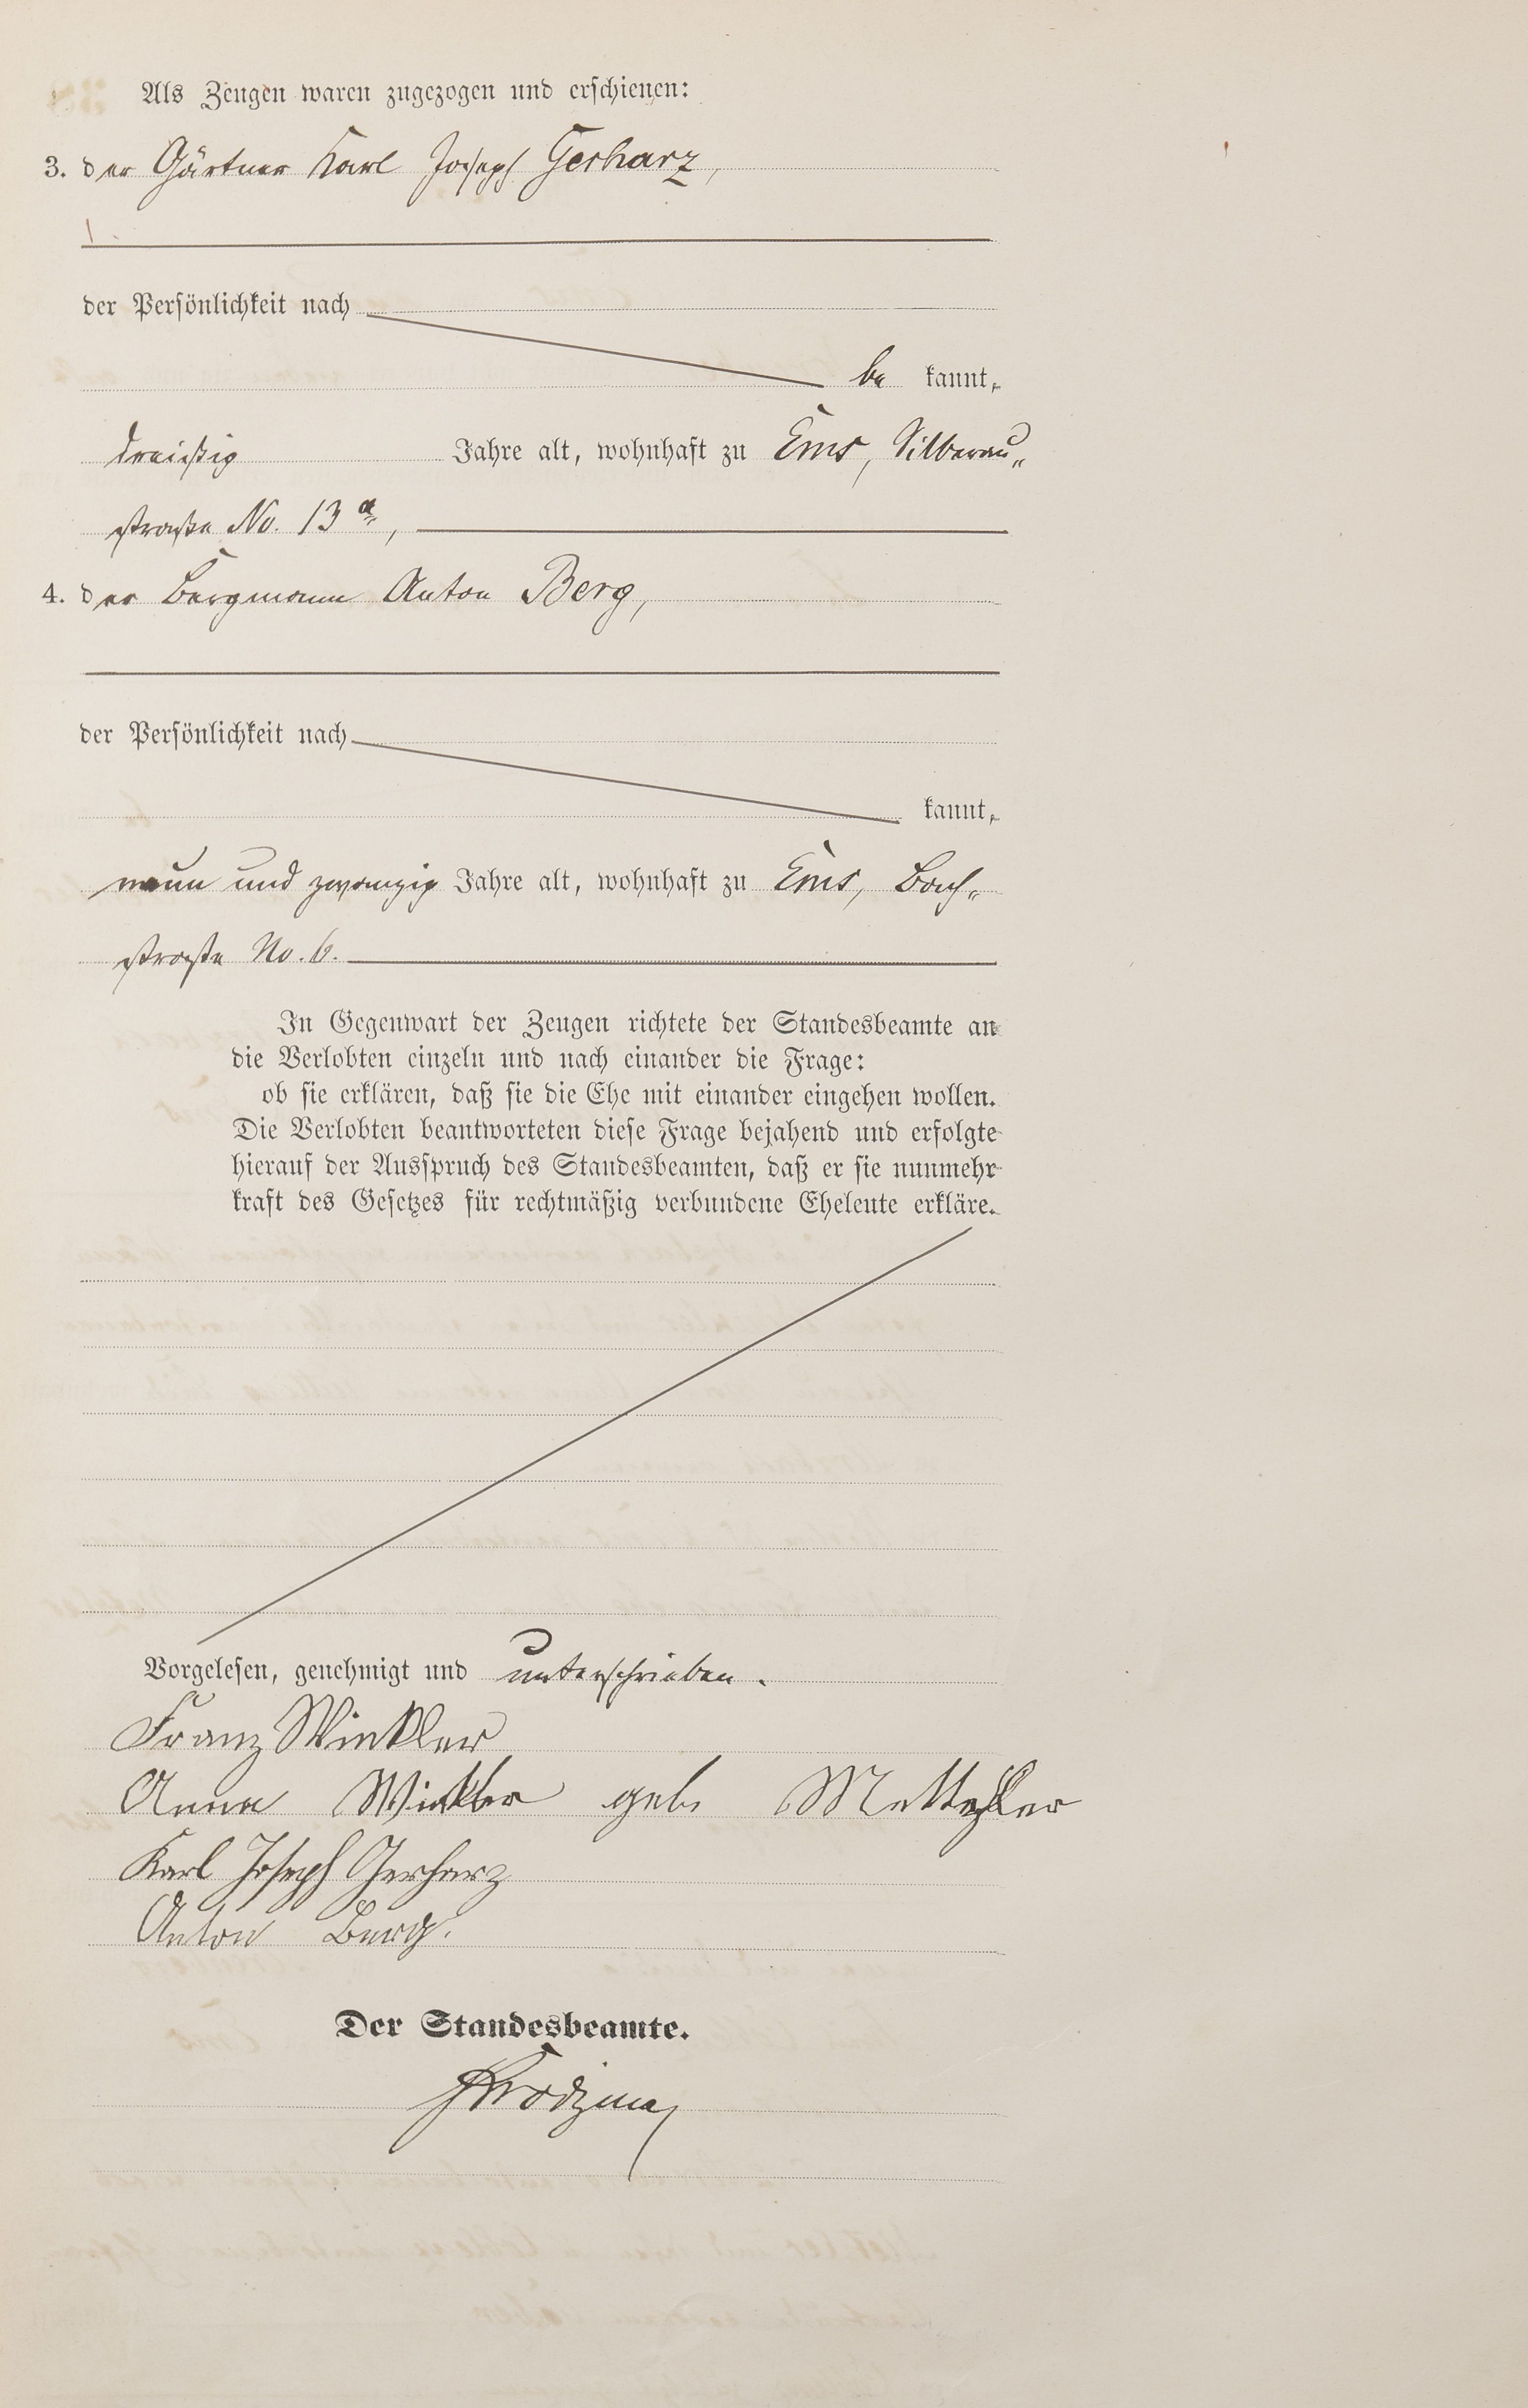 Als Zeugen waren zugezogen und erschienen:
3. der Gärtner Karl Joseph Gerharz,
der Persönlichkeit nach
be kannt,
dreißig Jahre alt, wohnhaft zu Ems, Silberau„
straße No. 13 a,
4. der Bergmann Anton Berg,
der Persönlichkeit nach
kannt,
neun und zwanzig Jahre alt, wohnhaft zu Ems, Bach„
straße No. 6.
In Gegenwart der Zeugen richtete der Standesbeamte an
die Verlobten einzeln und nach einander die Frage:
ob sie erklären, daß sie die Ehe mit einander eingehen wollen.
Die Verlobten beantworteten diese Frage bejahend und erfolgte
hierauf der Ausspruch des Standesbeamten, daß er sie nunmehr
kraft des Gesetzes für rechtmäßig verbundene Eheleute erkläre.
Vorgelesen, genehmigt und unterschrieben.
Franz Winkler
Anna Winkler geb.
Karl Joseph Gerharz
Anton Berg.
Der Standesbeamte.